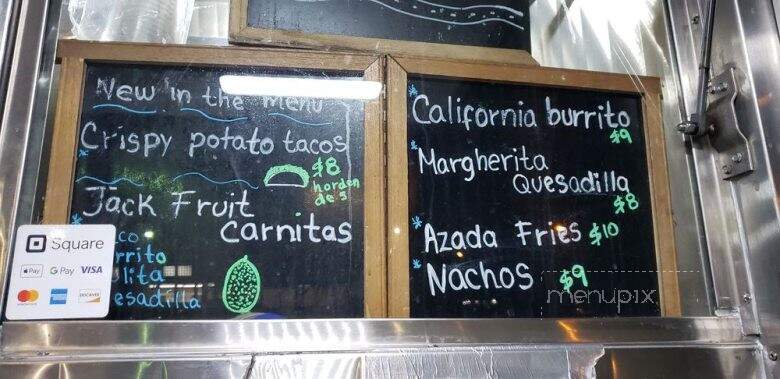 New in the menu
Crispy potato tacos
$8
horden
de 5
Jack Fruit
Carnitas
co
rrito
lita
esadilla
Square
Pay
G Pay
VISA
mastercard
DISCOVER
*California burrito
$9
*Margherita
Quesadilla
$8
*Azada Fries $10
*Nachos $9
menupix